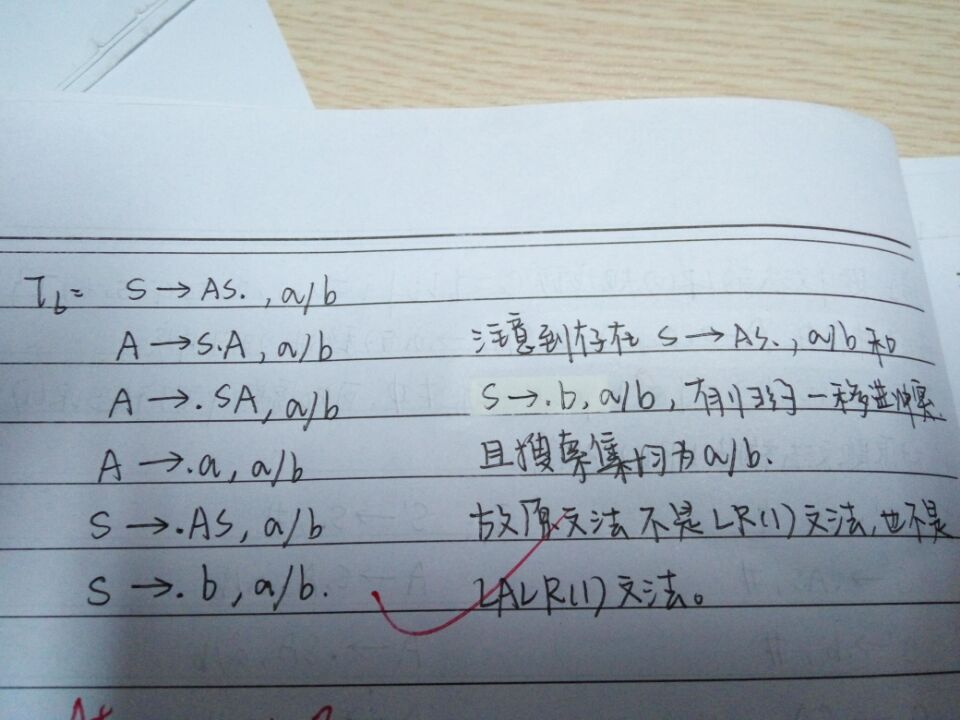 I₆= S→AS. , a/b
A→S.A, a/b
A→.SA, a/b
A→.a, a/b
S→.AS, a/b
S→.b, a/b.
注意到存在 S→AS., a/b 和
S→.b, a/b, 有归约-移进冲突
且搜索集均为a/b.
故原文法不是LR(1)文法,也不是
LALR(1)文法。